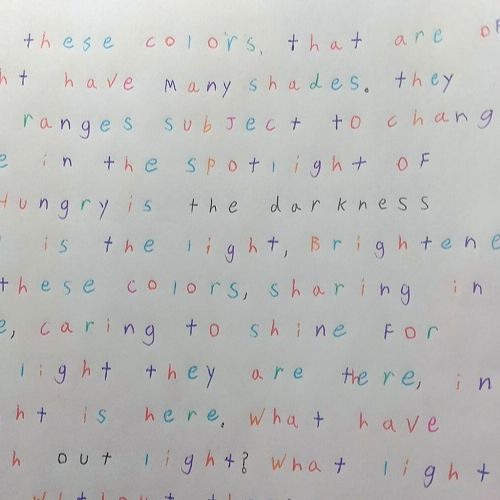 these colors. that are OF
ht have many shades. they
ranges subject to chang
e in the spotlight OF
Hungry is the darkness
is the light, Brightene
these colors, sharing in
e, caring to shine For
light they are there, in
ht is here. What have
h out light? What light